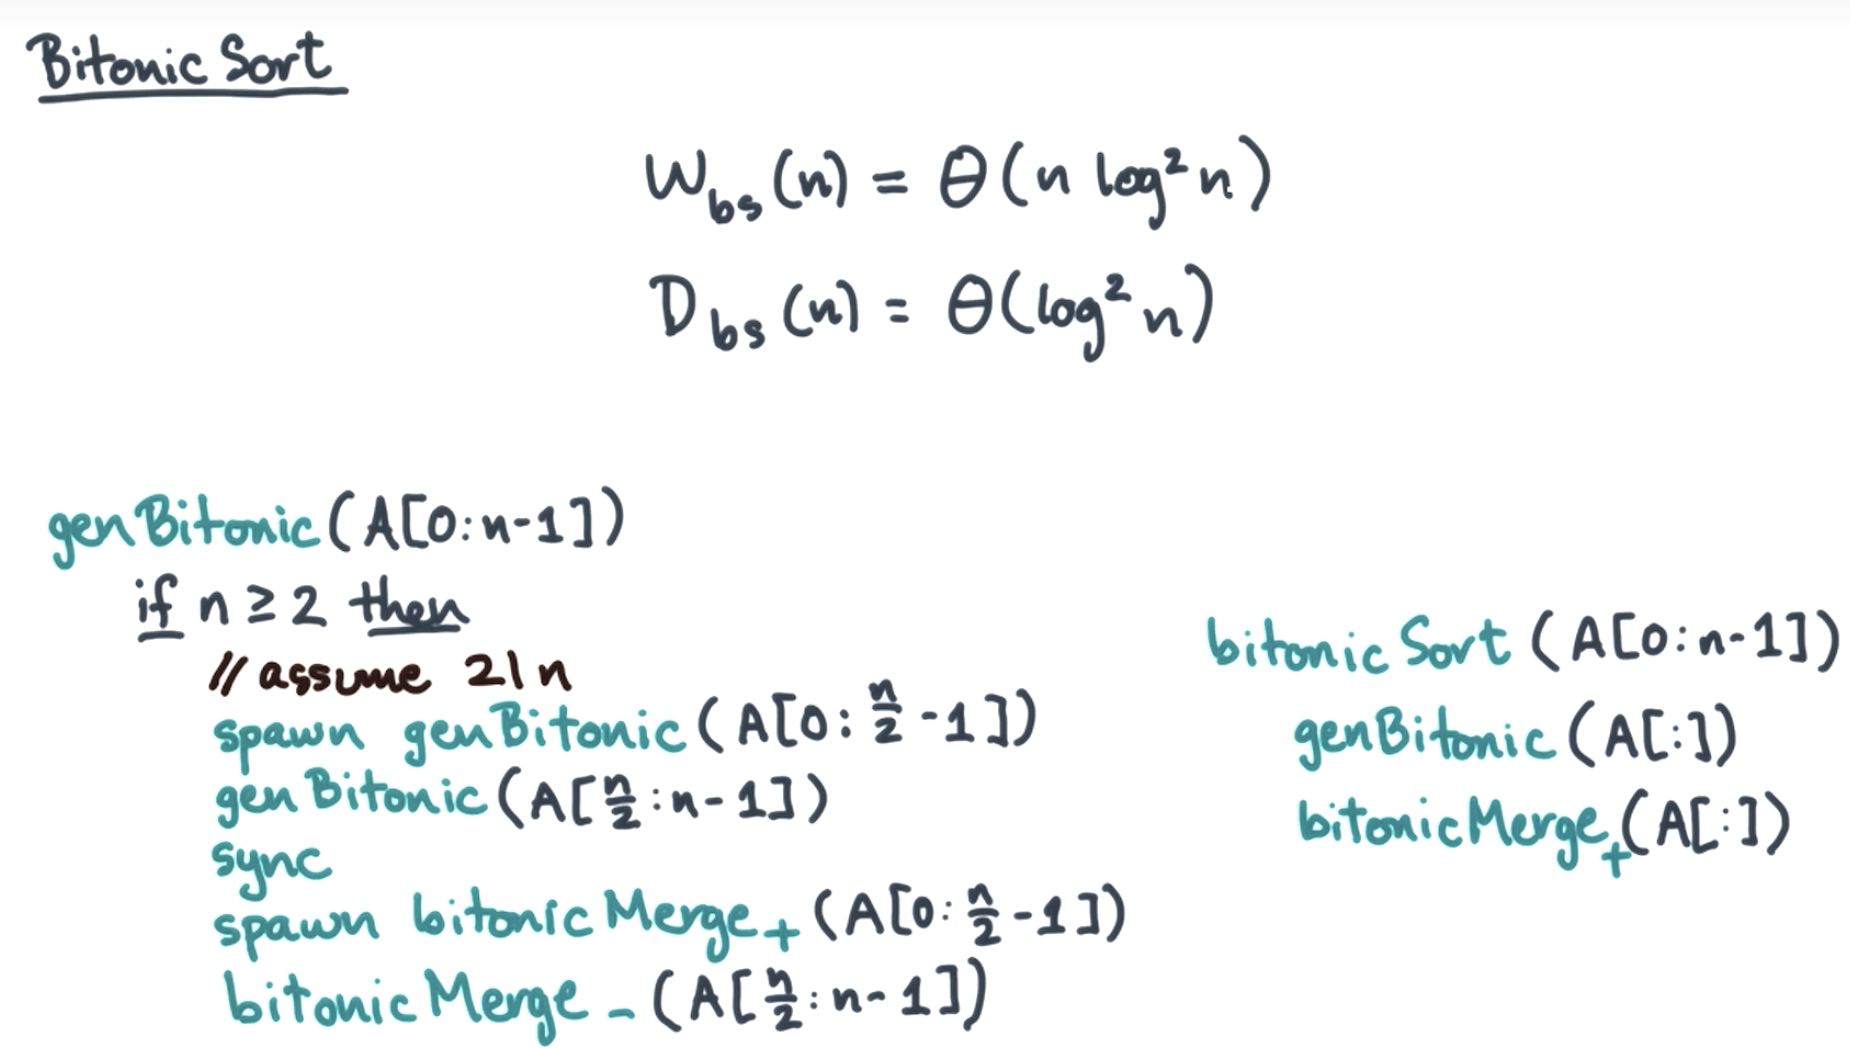 Bitonic Sort
W_bs (n) = Θ(n log² n)
D_bs (n) = Θ(log² n)
genBitonic (A[0:n-1])
if n ≥ 2 then
// assume 2|n
spawn genBitonic (A[0: n/2 -1])
genBitonic (A[n/2 : n-1])
sync
spawn bitonicMerge₊ (A[0: n/2 -1])
bitonicMerge₋ (A[n/2 : n-1])
bitonicSort (A[0:n-1])
genBitonic (A[:])
bitonicMerge₊ (A[:])